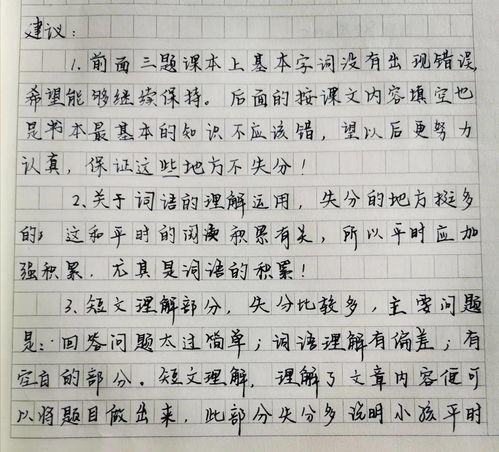 建议:
1. 前面三题课本上基本字词没有出现错误,
希望能够继续保持。后面的按课文内容填空也
是书本最基本的知识不应该错,望以后更努力
认真,保证这些地方不失分!
2、关于词语的理解运用,失分的地方挺多
的,这和平时的阅读积累有关,所以平时应加
强积累,尤其是词语的积累!
3、短文理解部分,失分比较多,主要问题
是:回答问题太过简单;词语理解有偏差;有
空白的部分。短文理解,理解了文章内容便可
以将题目做出来,此部分失分多说明小孩平时